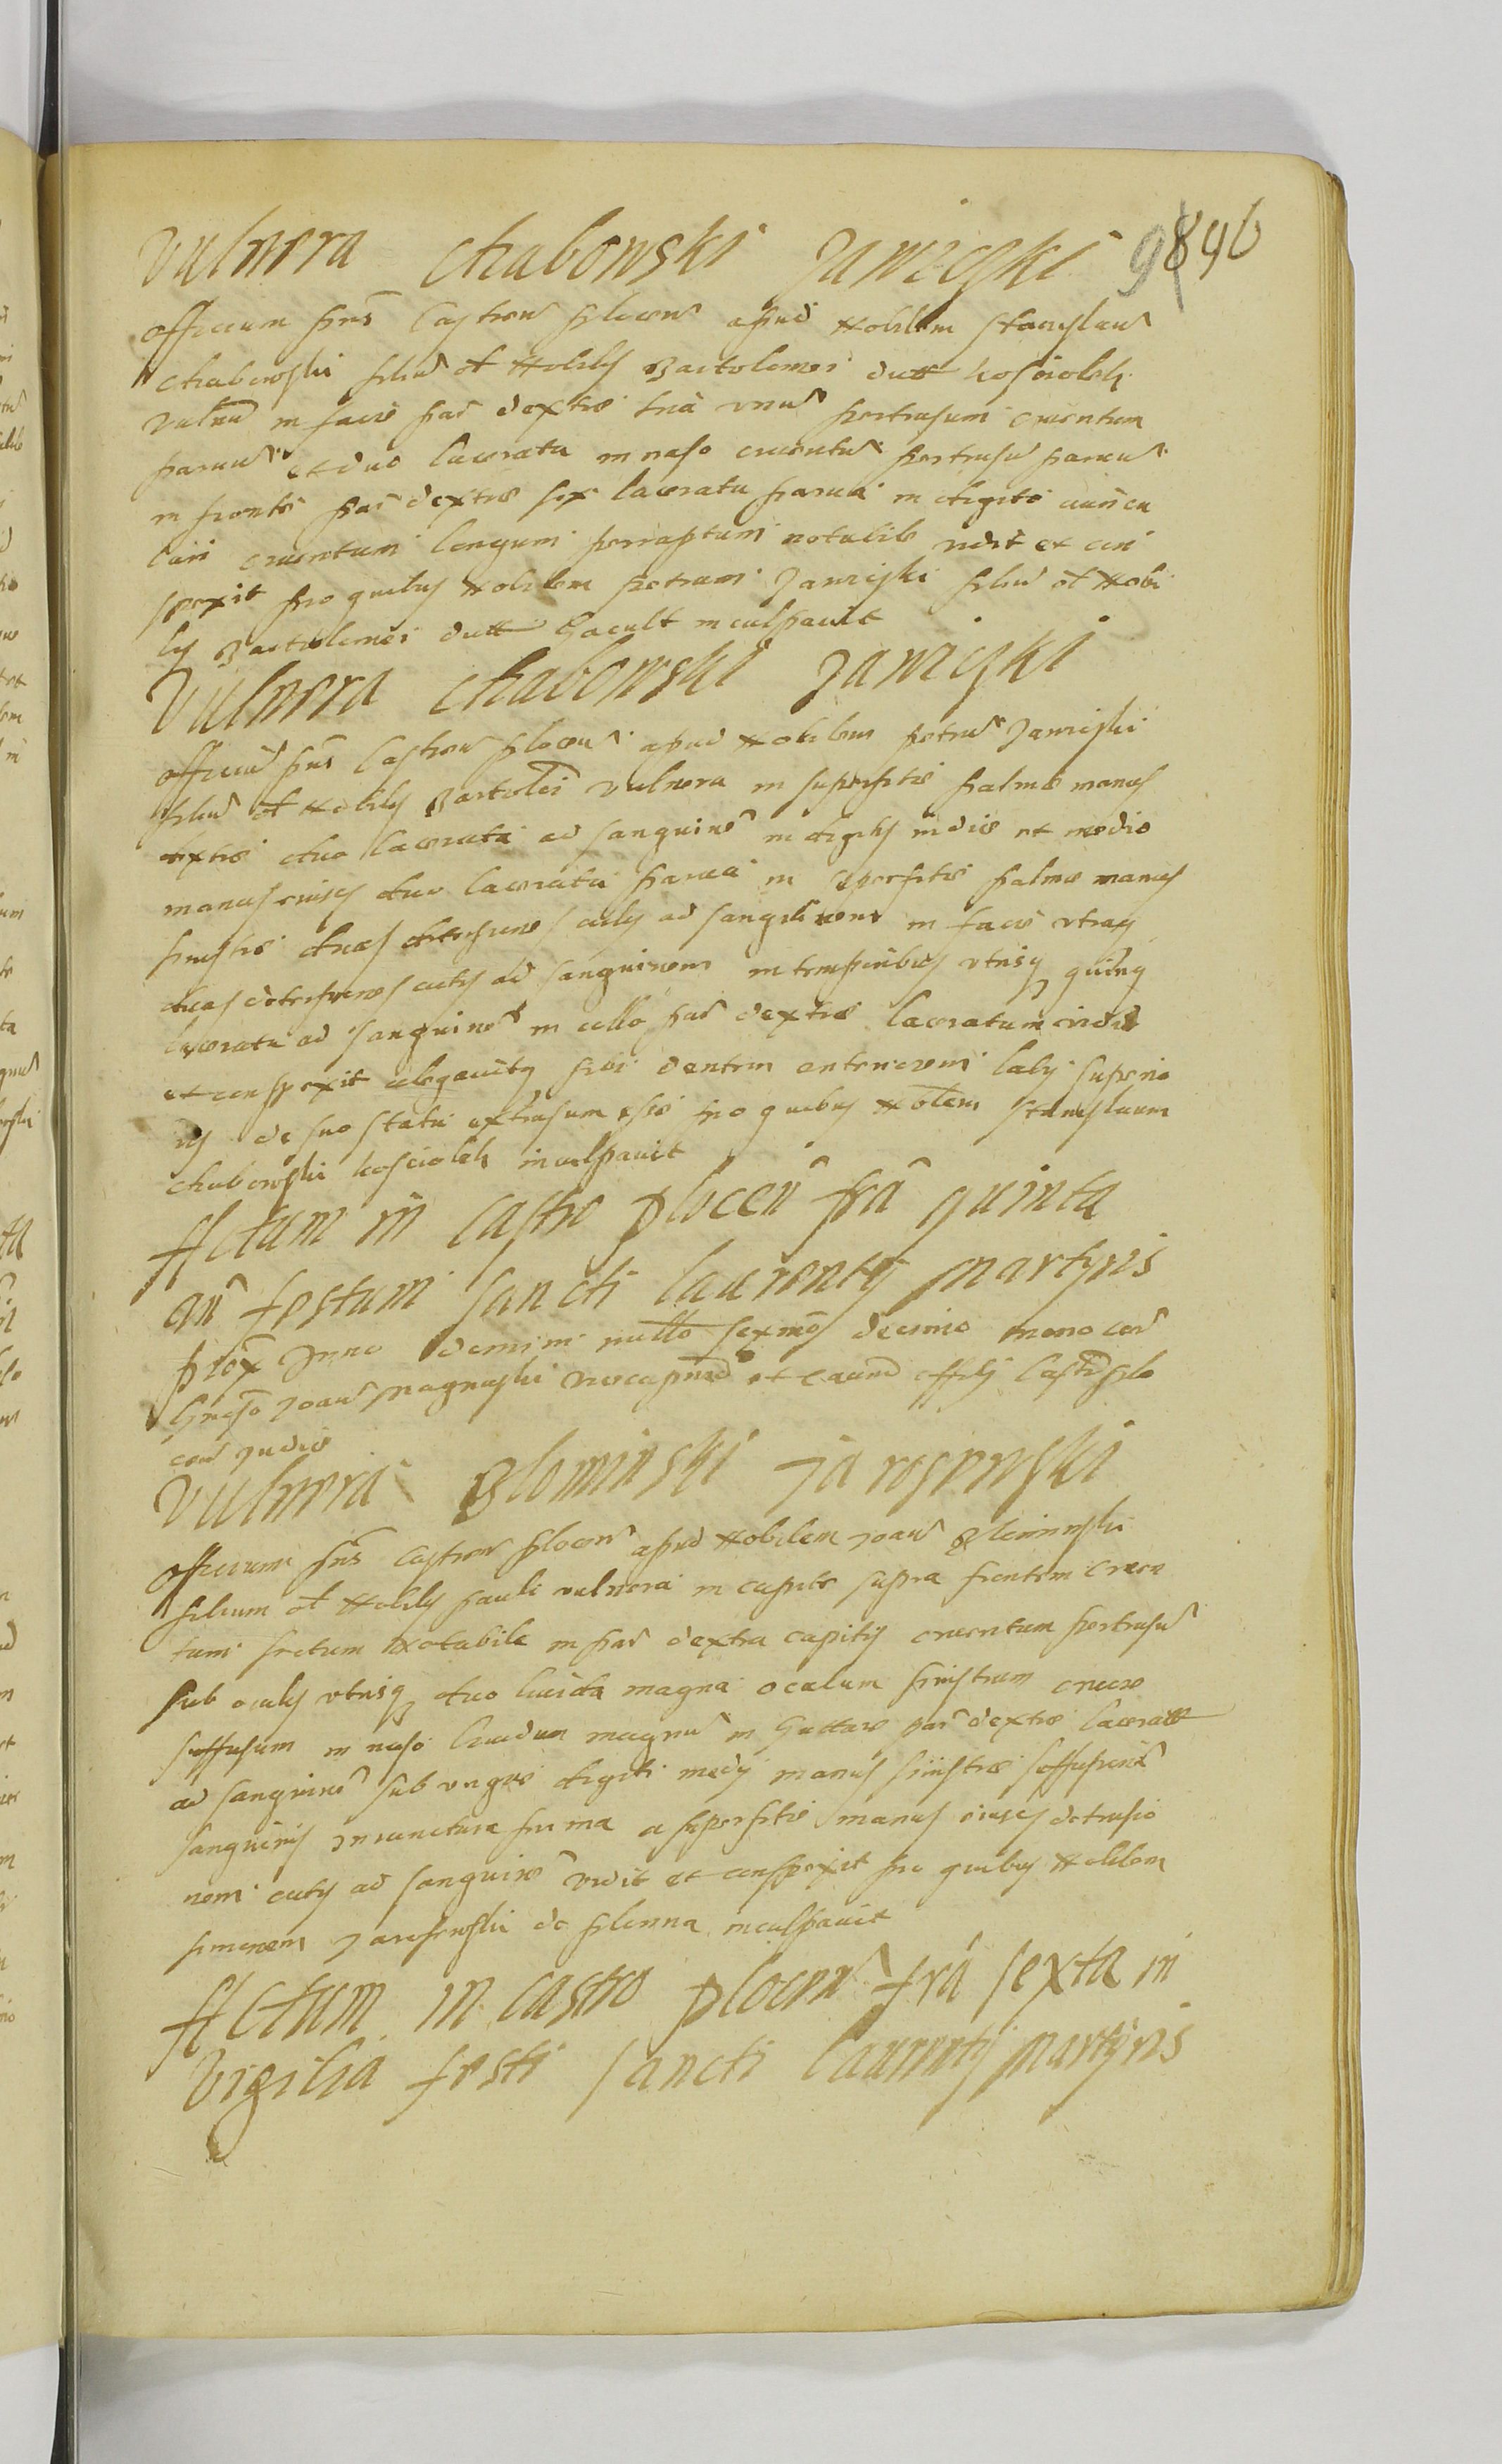 Vulnera Chabowski Janicski 9846
Officium pns Castren Plocen apud Nobilem Stanislau
Chabowski filiu ot Nobilis Bartolomei dutt Kosciolek
Vulnu in facie par dextre tria unu pertusum cruentum
paruu et duo lacerata in naso cruentu pertusu paruu
in fronte par dextre sex lacerata parua in digito auricu
lari cruentum longum notabile vidit et con
spexit pro quibus Nobilem Petrum Janicski filiu ot Nobi
lis Bartolomei dutt inculpauit
Vulnera Chabowski Janicski
Officiu pns Castren Plocen apud Nobilem Petru Janicski
filiu ot Nobilis Bartolei Vulnera in superficie palme manus
dextre duo lacerata ad sanguine in digitis indice et medio
manus eiusq duo lacerata parua in superficie palme manus
sinistre duas detrusiones cutis ad sanguinem in facie utraq
duas detrusiones cutis ad sanguinem in temporibus utrisq quinq
lacerata ad sanguine in collo par dextre laceratum vidit
et conspexit alegauitq sibi dentem anteriorem labij superio
ris de suo statu extrusum esse pro quibus Nobilem Stanislaum
Chabowski Kosciolek inculpauit
Actum in Castro Plocen fra quinta
an festum Sancti Laurentij Martyris
prox Anno domini millo sexmo decimo nono cor
Gnoso Joan Magnuski Vicecapneo et eaund offij Castr Plo
cen Judice
Vulnera Blominski Jarosewski
Officium pns Castren Plocen apud Nobilem Joan Blominski
filium ot Nobilis Pauli vulnera in capite supra frontem cruen
tum sectum Notabile in par dextra capitis cruentum pertusu
sub oculis utrisq duo liuida magna oculum sinistrum cruore
suffusum in naso liuidum magnu in Gutture par dextre lacerata
ad sanguine sub ungue digiti medij manus sinistre suffusione
sanguinis in iunctura prima a superficie manus eiusq detrusio
nem cutis ad sanguine vidit et conspexit pro quibus Nobilem
Simonem Jarosewski de inculpauit
Actum in Castro Plocen fra sexta in
Vigilia festi Sancti Laurentij Martyris